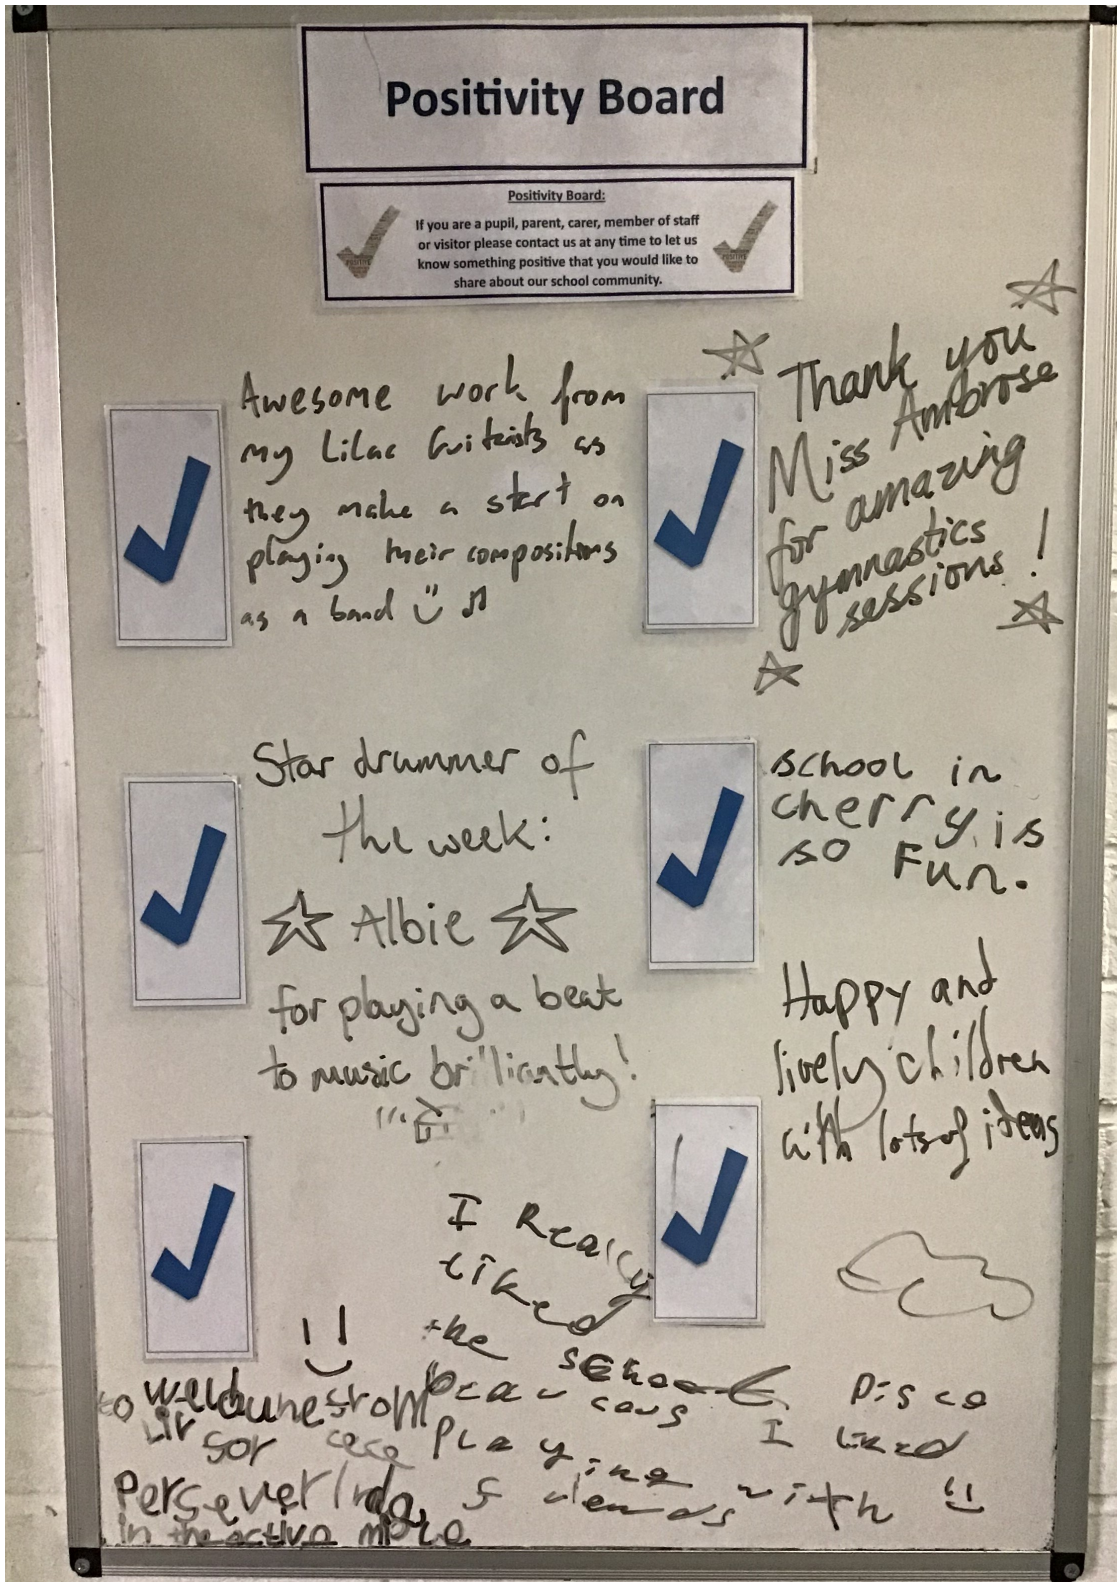 Positivity Board
Positivity Board:
If you are a pupil, parent, carer, member of staff
or visitor please contact us at any time to let us
know something positive that you would like to
share about our school community.
Awesome work from
my Lilac Guitarists as
they make a start on
playing their compositions
as a band
Thank you
Miss Ambrose
for amazing
gymnastics
sessions!
Star drummer of
the week:
Albie
for playing a beat
to music brilliantly!
school in
cherry is
so Fun.
Happy and
lively children
with lots of ideas
I Really
liked
the school Disco
I liked
Playing with
to
in the active